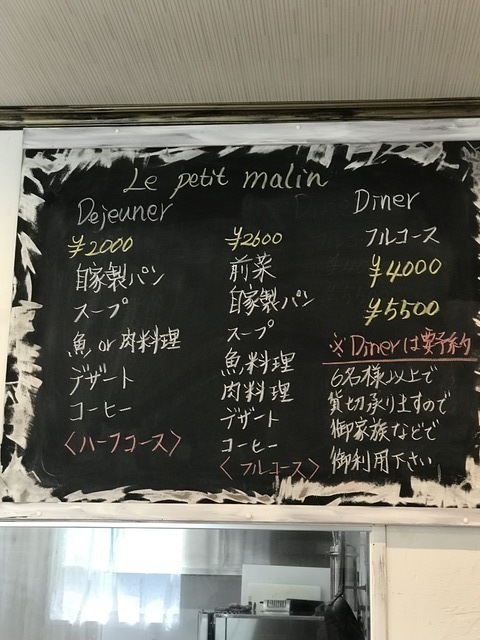 Le petit malin
Dejeuner
¥2000
自家製パン
スープ
魚 or 肉料理
デザート
コーヒー
〈ハーフコース〉
¥2600
前菜
自家製パン
スープ
魚料理
肉料理
デザート
コーヒー
〈フルコース〉
Diner
フルコース
¥4000
¥5500
※Dinerは要予約
6名様以上で
貸切承りますので
御家族などで
御利用下さい